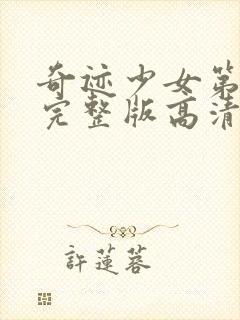 奇迹少女第
完整版高清
許蓮蓉